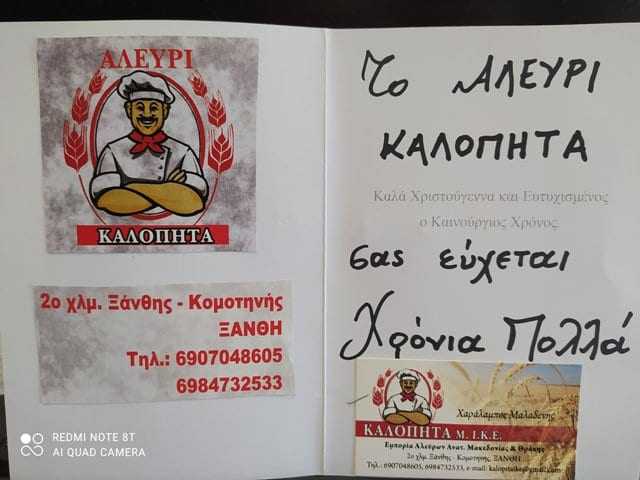 ΑΛΕΥΡΙ
ΚΑΛΟΠΗΤΑ
2ο χλμ. Ξάνθης - Κομοτηνής
ΞΑΝΘΗ
Τηλ.: 6907048605
6984732533
Το ΑΛΕΥΡΙ
ΚΑΛΟΠΗΤΑ
Καλά Χριστούγεννα και Ευτυχισμένος
ο Καινούργιος Χρόνος
σας εύχεται
Χρόνια Πολλά
Χαράλαμπος Μαλαδενης
ΚΑΛΟΠΗΤΑ Μ. Ι.Κ.Ε.
Εμπορία Αλεύρων Ανατ. Μακεδονίας & Θράκης
2ο χλμ. Ξάνθης - Κομοτηνής, ΞΑΝΘΗ
Τηλ.: 6907048605, 6984732533, e-mail: kalopitaike@gmail.com
REDMI NOTE 8T
AI QUAD CAMERA